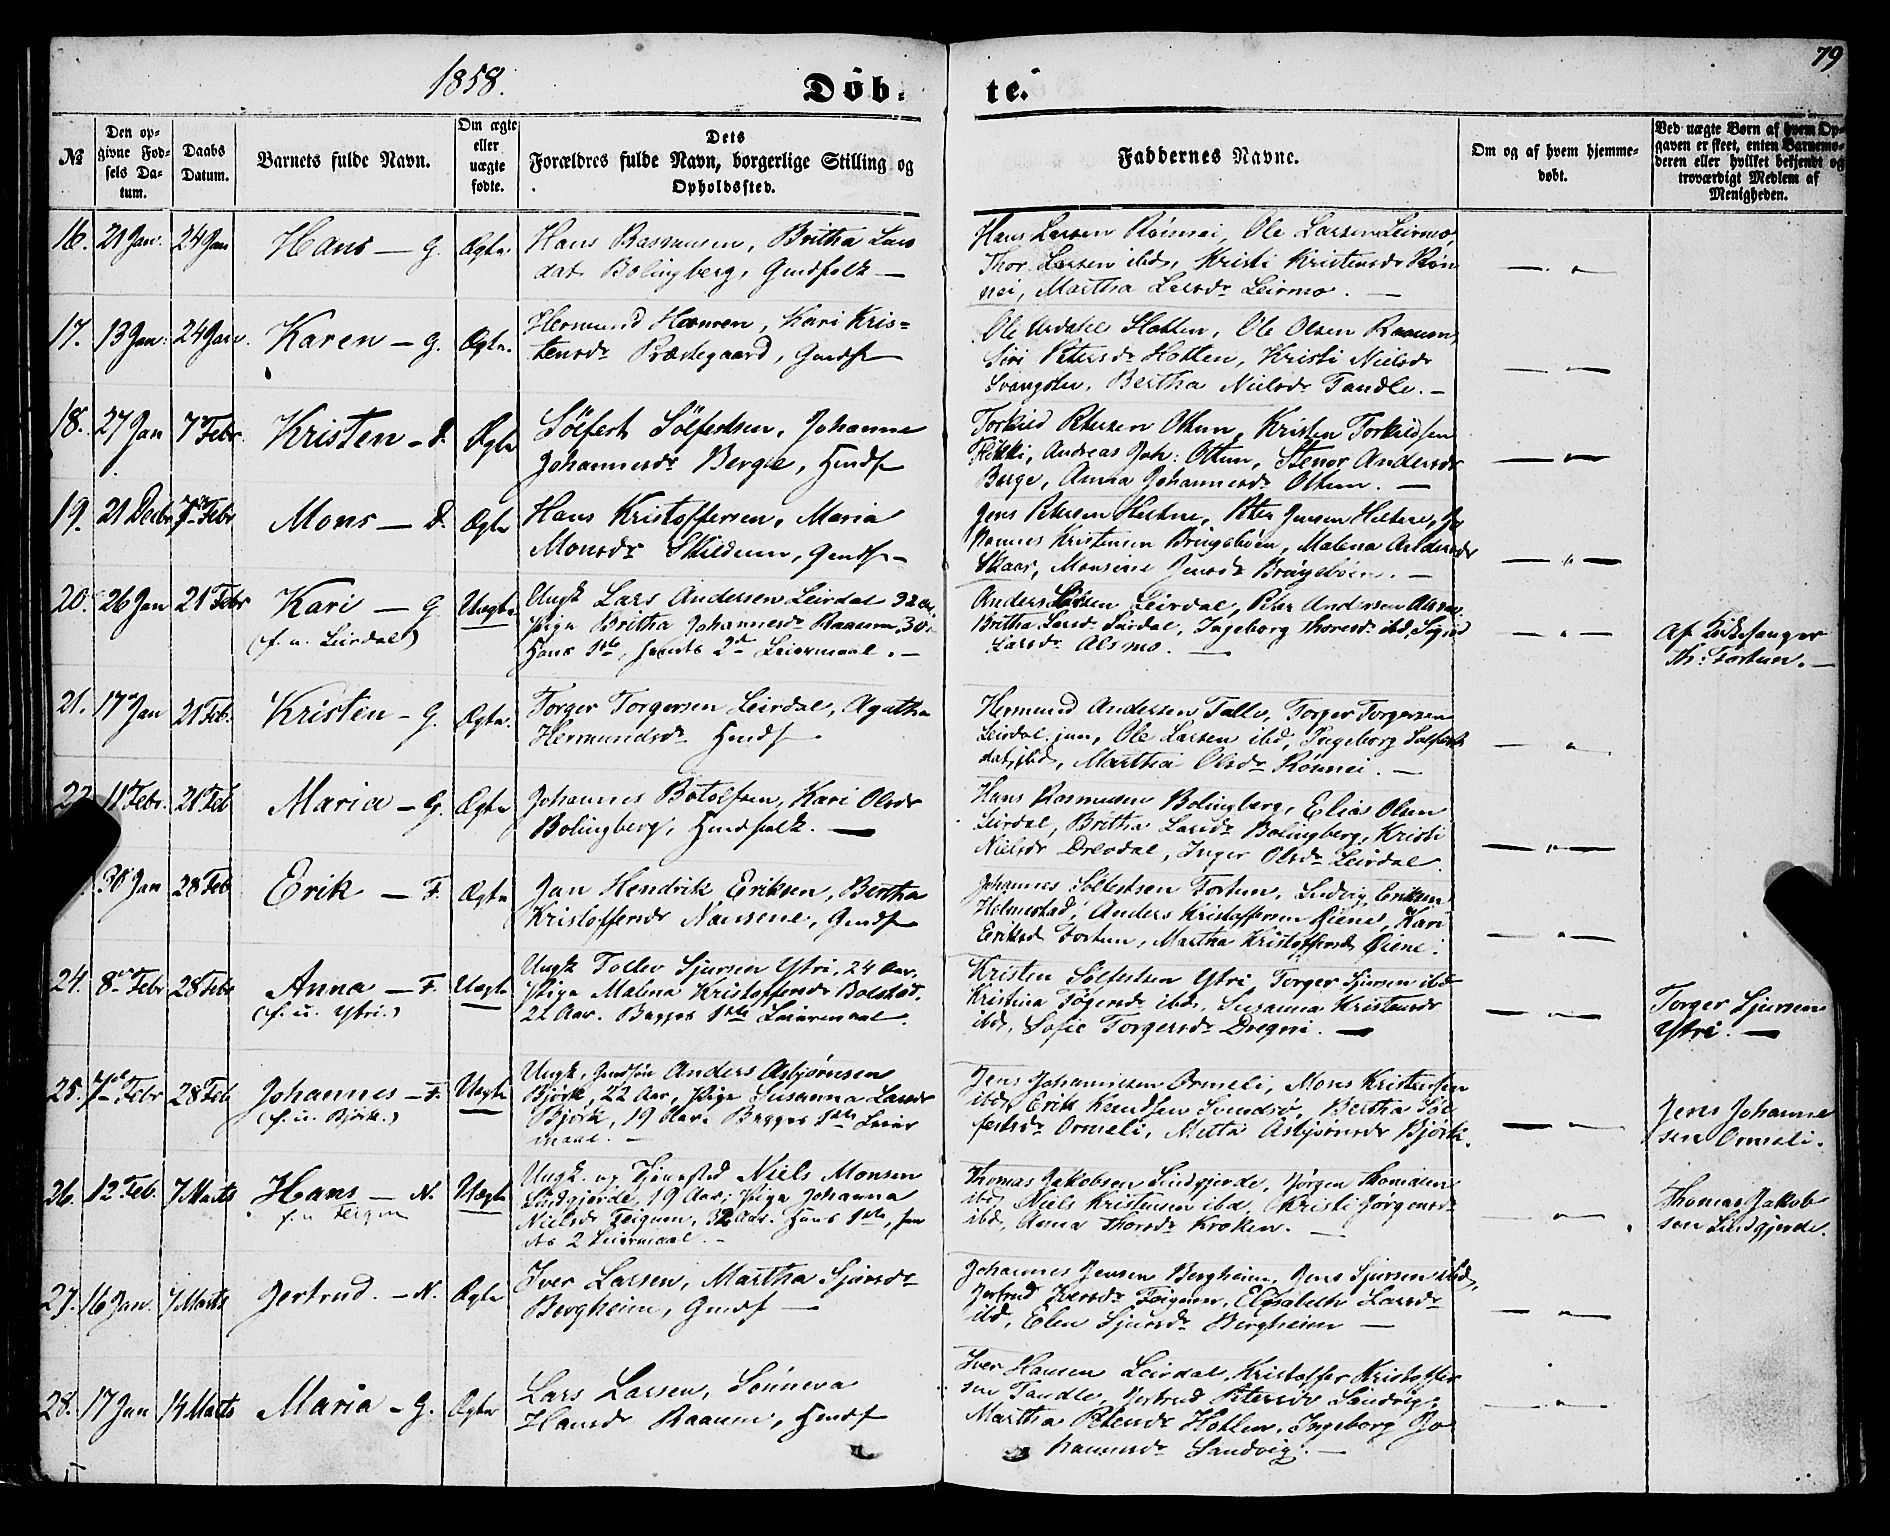 79
1858.
Döb- te.
№
Den op-
givne Fød-
sels Da-
tum.
Daabs
Datum.
Barnets fulde Navn.
Om ægte
eller
uægte
fødte.
Dets
Forældres fulde Navn, borgerlige Stilling og
Opholdssted.
Faddernes Navne.
Om og af hvem hjemme-
døbt.
Ved uægte Børn af hvem Op-
gaven er skeet, enten Barnemo-
deren eller hvilket bekjendt og
troværdigt Medlem af
Menigheden.
16. 21 Jan. 24 Jan Hans — G. Ægte
Hans Rasmusen, Britha Lars
dat. Bolingberg, Gmdfolk —
Hans Larsen Rönnei, Ole Larsen Leirmo,
Thor Larsen ibd, Kristi Kristensdr Rön
nei, Martha Larsdr Leirmo. —
17. 13 Jan. 24 Jan. Karen — G. Ægte.
Hermund Hermen, Kari Kris-
tensdr Præstegaard, Gmdf
Ole Ardahl Hatlen, Ole Olsen Raaum
Siri Petersdr Hatlen, Kristi Nielsdr
Svangstu, Bertha Nielsdr Tandle. —
18. 27 Jan 7 Febr. Kristen — D. Ægte
Sölfest Sölfestsen, Johanne
Johannesdr Berge, Hmdf
Torkild Petersen Ottum, Kristen Torkildsen
Flikki, Andreas Joh: Ottum, Stenor Andersdr
Berge, Anna Johannesdr Ottum. —
19. 21 Decbr 7 Febr Mons — D. Ægte
Hans Kristoffersen, Maria
Monsdr Skildum, Gmdf —
Jens Petersen Hältne, Peter Jensen Hältne, Jo
hannes Kristensen Bringebøen, Malena Andersdr
Skaar, Monsine Jensdr Bringebøen. —
20. 26 Jan 21 Febr Kari — G Uægte
(f. u. Leirdal)
Ungk Lars Andersen Leirdal 32 Aar.
Pige Britha Johannesdr Raaum, 30.
Hans 1ste, hendes 2d Leiermaal. —
Anders Larsen Leirdal, Peter Andersen Alsmo
Britha Larsdr Leirdal, Ingeborg Thoresdr ibd, Sigrid
Larsdr Alsmo. —
Af Kirkesanger
Th: Fortun. —
21. 17 Jan 21 Feb. Kristen — G. Ægte.
Torger Torgersen Leirdal, Agatha
Hermundsdr Hmdf
Hermund Andersen Talle, Torger Torgersen
Leirdal jun, Ole Larsen ibd, Ingeborg Sölfests
dat. ibd, Martha Olsdr Rönnei. —
11 Febr. 21 Feb Maria — G. Ægte
Johannes Botolfsen, Kari Olsdr
Bolingberg, Hmdfolk. —
Hans Rasmusen Bolingberg, Elias Olsen
Leirdal, Britha Larsdr Bolingberg, Kristi
Nielsdr Drevdal, Inger Olsdr Leirdal.
30 Jan 28 Feb Erik — F. Ægte
Jan Hendrik Eriksen, Bertha
Kristoffersdr Naussene, Gmdf
Johannes Sölfestsen Fortun, Ludvig Eriksen
Holmestad, Anders Kristoffersen Øiene, Kari
Eriksd Fortun, Martha Kristoffersd Øiene.
24. 8 Febr 28 Febr Anna — F. Uægte
(f. u. Ytri.)
Ungk Tollev Sjursen Ytri, 24 Aar.
Pige Malena Kristoffersdr Bolstad,
22 Aar. Begges 1ste Leiermaal.
Kristen Sölfestsen Ytri, Torger Sjursen ibd
Kristina Tögersdr ibd, Susanna Kristensdr
ibd, Sofie Torgersdr Dregni. —
Torger Sjursen
Ytri. —
25. 7 Febr 28 Feb Johannes — F. Uægte
(f. u. Björk.)
Ungk, Gmdsön Anders Asbjørnsen
Björk, 22 Aar, Pige Susanna Larsdr
Björk, 19 Aar. Begges 1ste Leier
maal. —
Jens Johannesen Ormeli, Mons Kristensen
ibd, Erik Knudsen Svendsö, Bertha Söl
festsdr Ormeli, Metta Asbjörnsdr Björk.
Jens Johanne
sen Ormeli.
26. 12 Feb. 7 Marts Hans — N. Uægte
f. u Feigum
Ungk. og Tjenestd Niels Monsen
Lindsgjerde, 19 Aar, Pige Johanna
Nielsdr Feigum, 32 Aar. Hans 1ste, hen
des 2 Leiermaal. —
Thomas Jakobsen Lindsgjerde, Jörgen Thomasen
ibd, Niels Kristensen ibd, Kristi Jörgensdr
ibd, Anna Thorsdr Kroken. —
Thomas Jakob
sen Lindsgjerde.
27. 16 Jan. 7 Marts Gertrud. — N. Ægte
Iver Larsen, Martha Sjursdr
Bergheim, Gmdf —
Johannes Jensen Bergheim, Jens Sjursen ibd,
Gertrud Iversdr Feigum, Elisabeth Larsdr
ibd, Elen Sjursdr Bergheim —
28. 17 Jan 14 Marts Maria — G. Ægte
Lars Larsen, Sönneva
Hansdr Raaum, Hmdf
Iver Hansen Leirdal, Kristoffer Kristoffer
sen Tandle, Gertrud Petersdr Sandvig,
Martha Petersdr Hatlen, Ingeborg Jo
hannesdr Sandvig. —